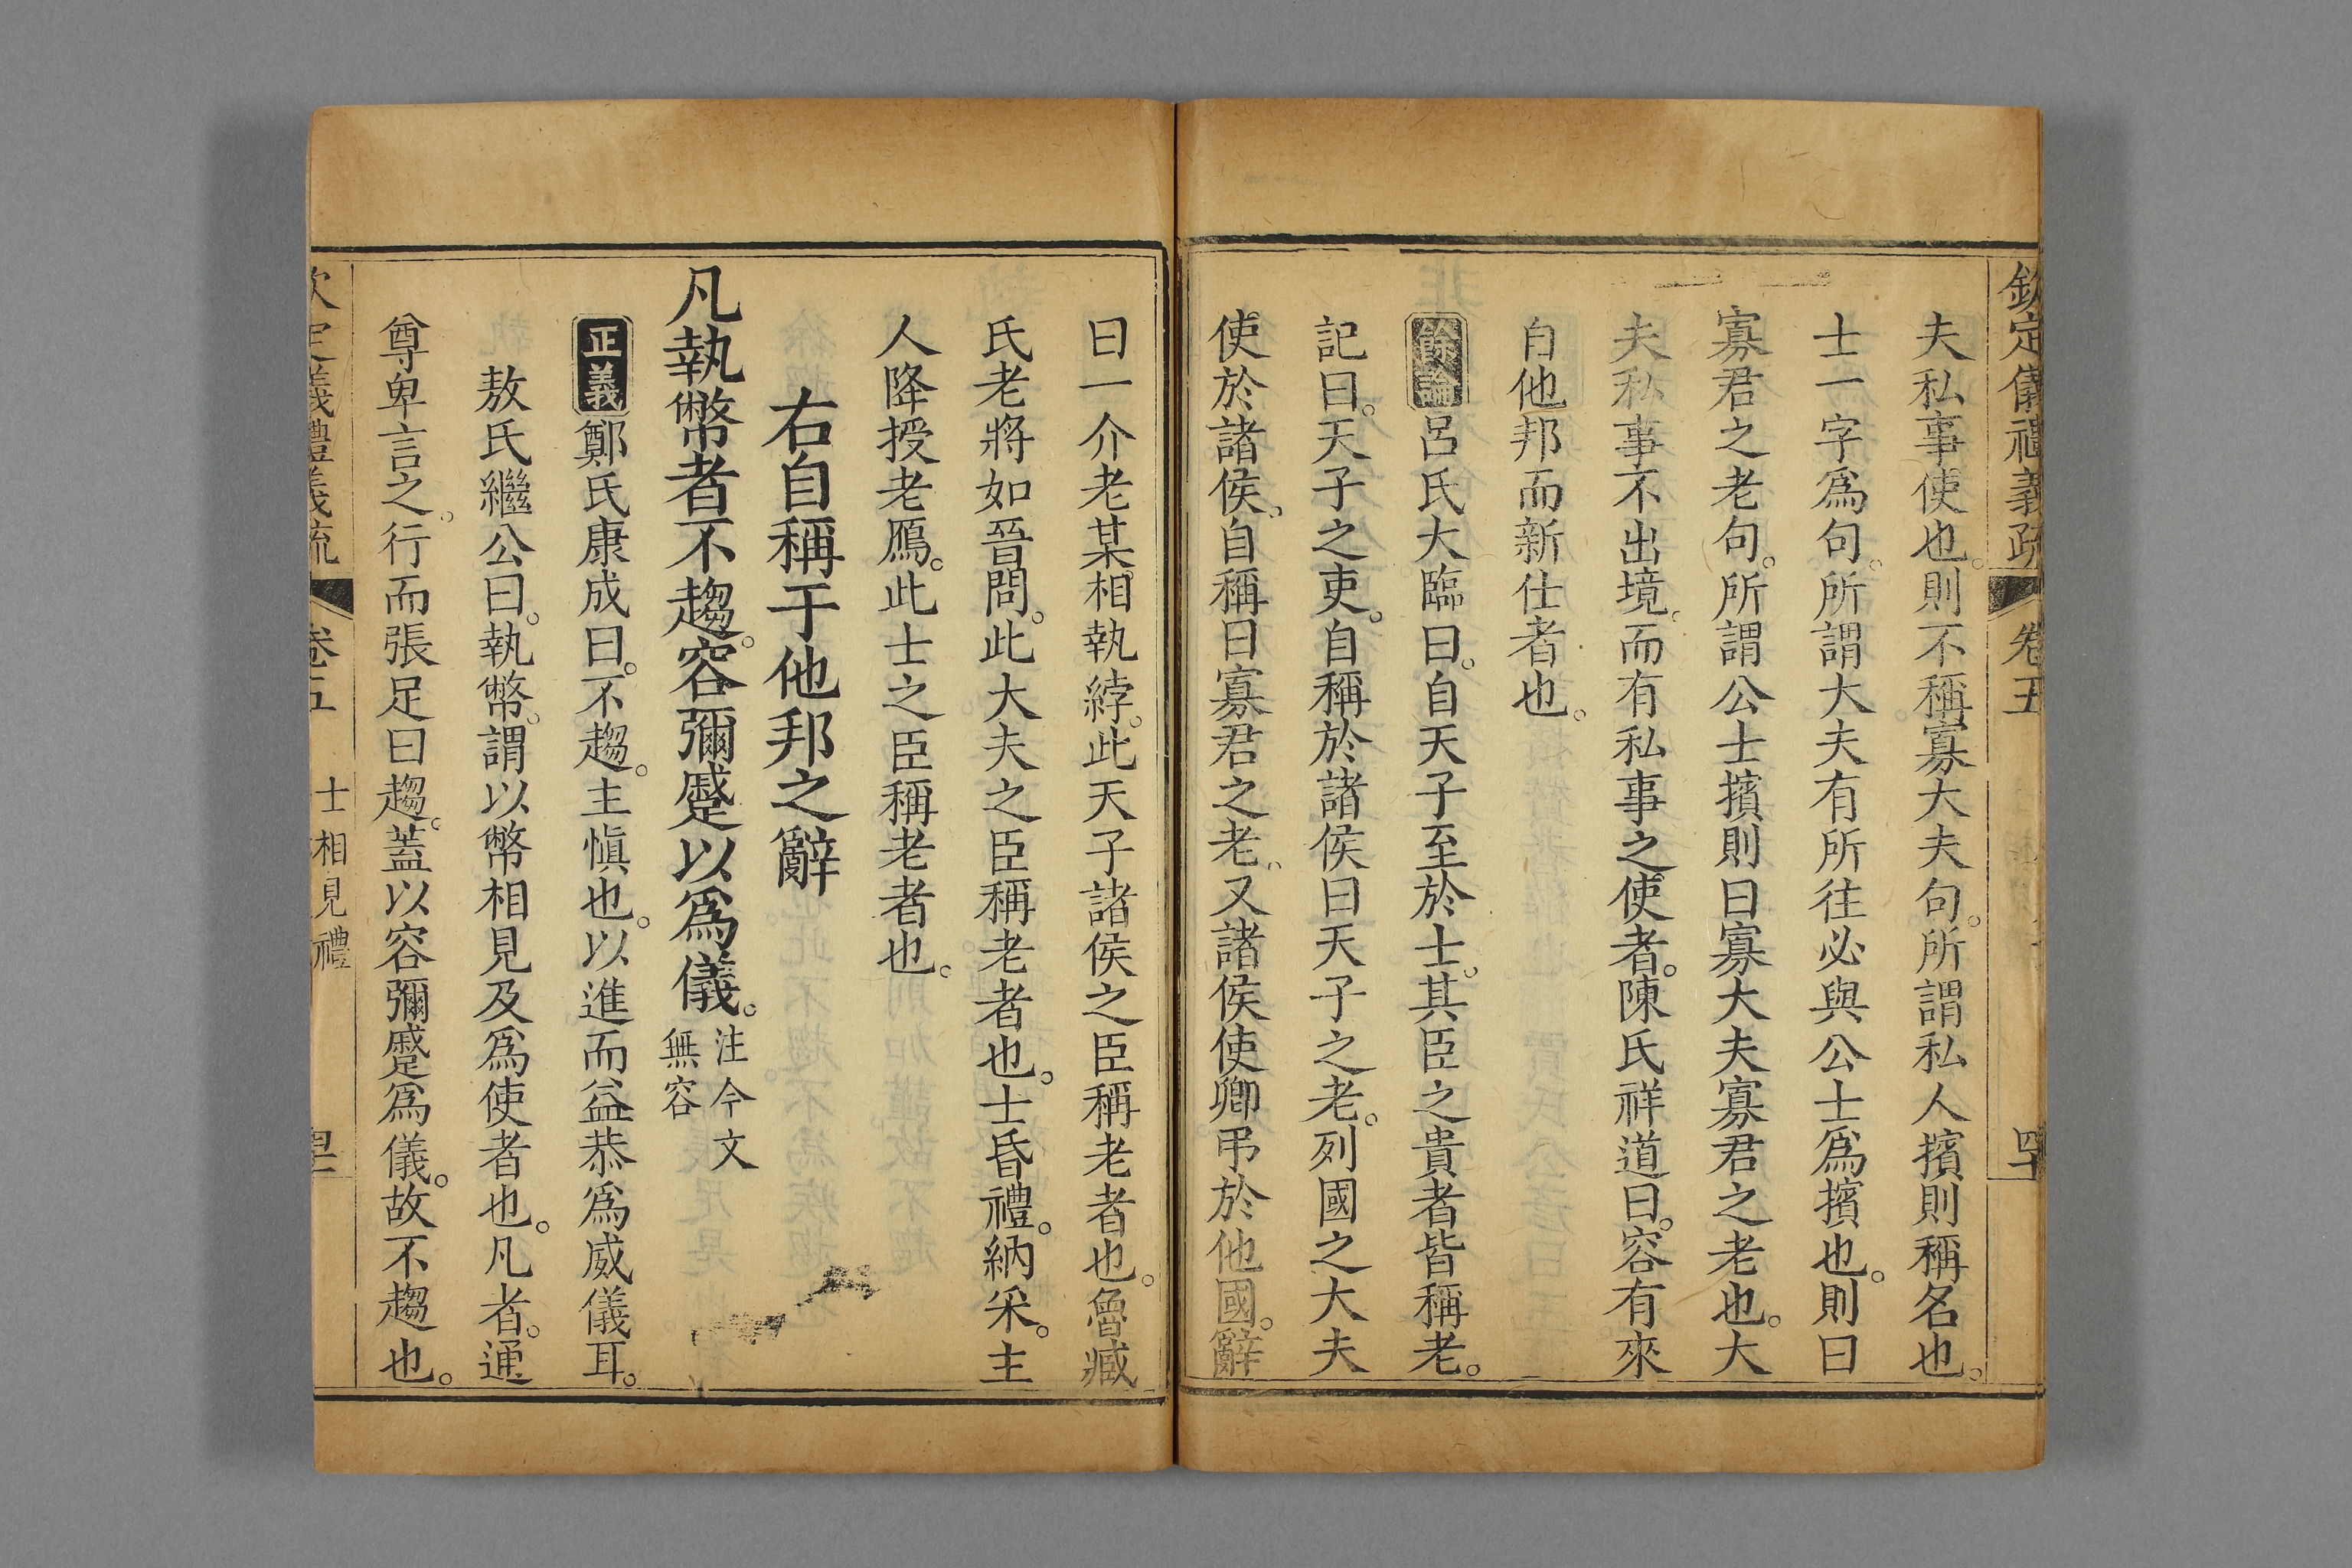 欽定儀禮義疏　卷五　四十
夫私事使也。則不稱寡大夫句。所謂私人擯則稱名也。
士一字爲句。所謂大夫有所往必與公士爲擯也。則曰
寡君之老句。所謂公士擯則曰寡大夫寡君之老也。大
夫私事不出境。而有私事之使者。陳氏祥道曰。容有來
自他邦而新仕者也。
餘論呂氏大臨曰。自天子至於士。其臣之貴者皆稱老。
記曰。天子之吏。自稱於諸侯曰天子之老。列國之大夫
使於諸侯。自稱曰寡君之老。又諸侯使卿弔於他國。辭
曰一介老某。相執綍。此天子諸侯之臣稱老者也。魯臧
氏老將如晉問。此大夫之臣稱老者也。士昏禮。納采。主
人降授老鴈。此士之臣稱老者也。
右自稱于他邦之辭
凡執幣者不趨。容彌蹙以爲儀。注今文無容
正義鄭氏康成曰。不趨。主愼也。以進而益恭爲威儀耳。
敖氏繼公曰。執幣。謂以幣相見及爲使者也。凡者。通
尊卑言之。行而張足曰趨。蓋以容彌蹙爲儀。故不趨也。
欽定儀禮義疏　卷五　士相見禮